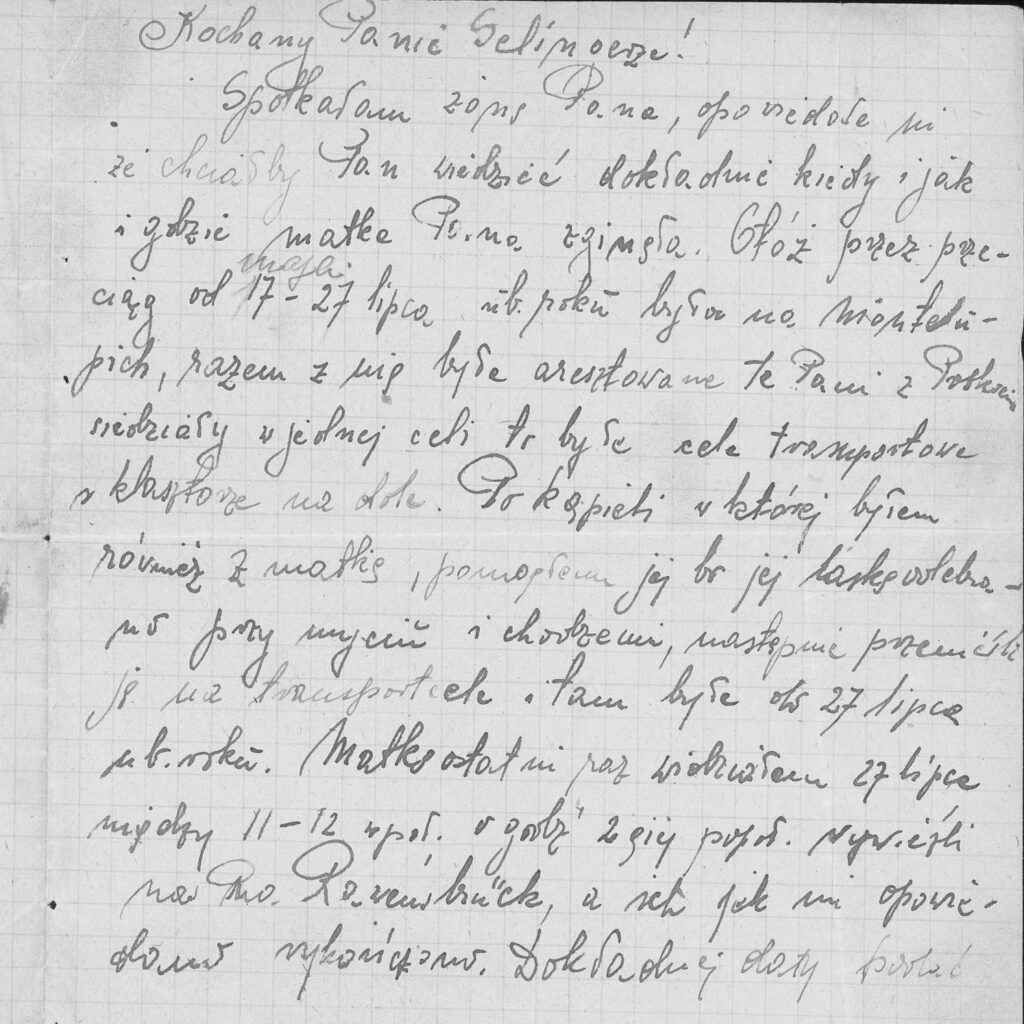 Kochany Panie Selingerze!
Spotkałam żonę Pana, opowiedała mi
że chciałby Pan wiedzieć dokładnie kiedy i jak
i gdzie matka Pana zginęła. Otóż przez prze-
maja
ciąg od 17 - 27 lipca ub. roku była na Montelu-
pich, razem z nią były aresztowane te Pani z
siedziały w jednej celi to była cela transportowa
w klasztorze na dole. Po kąpieli w której byłem
również z matką, pomogłem jej bo jej laskę odebra-
no przy myciu i chodzeniu, następnie przenieśli
ją na transportcele i tam była do 27 lipca
ub. roku. Matkę ostatni raz widziałem 27 lipca
między 11 - 12 wpoł. o godz 2giej popoł. wywieźli
na Ravensbrück, a ich jak mi opowie-
dano wykończono. Dokładnej daty podać